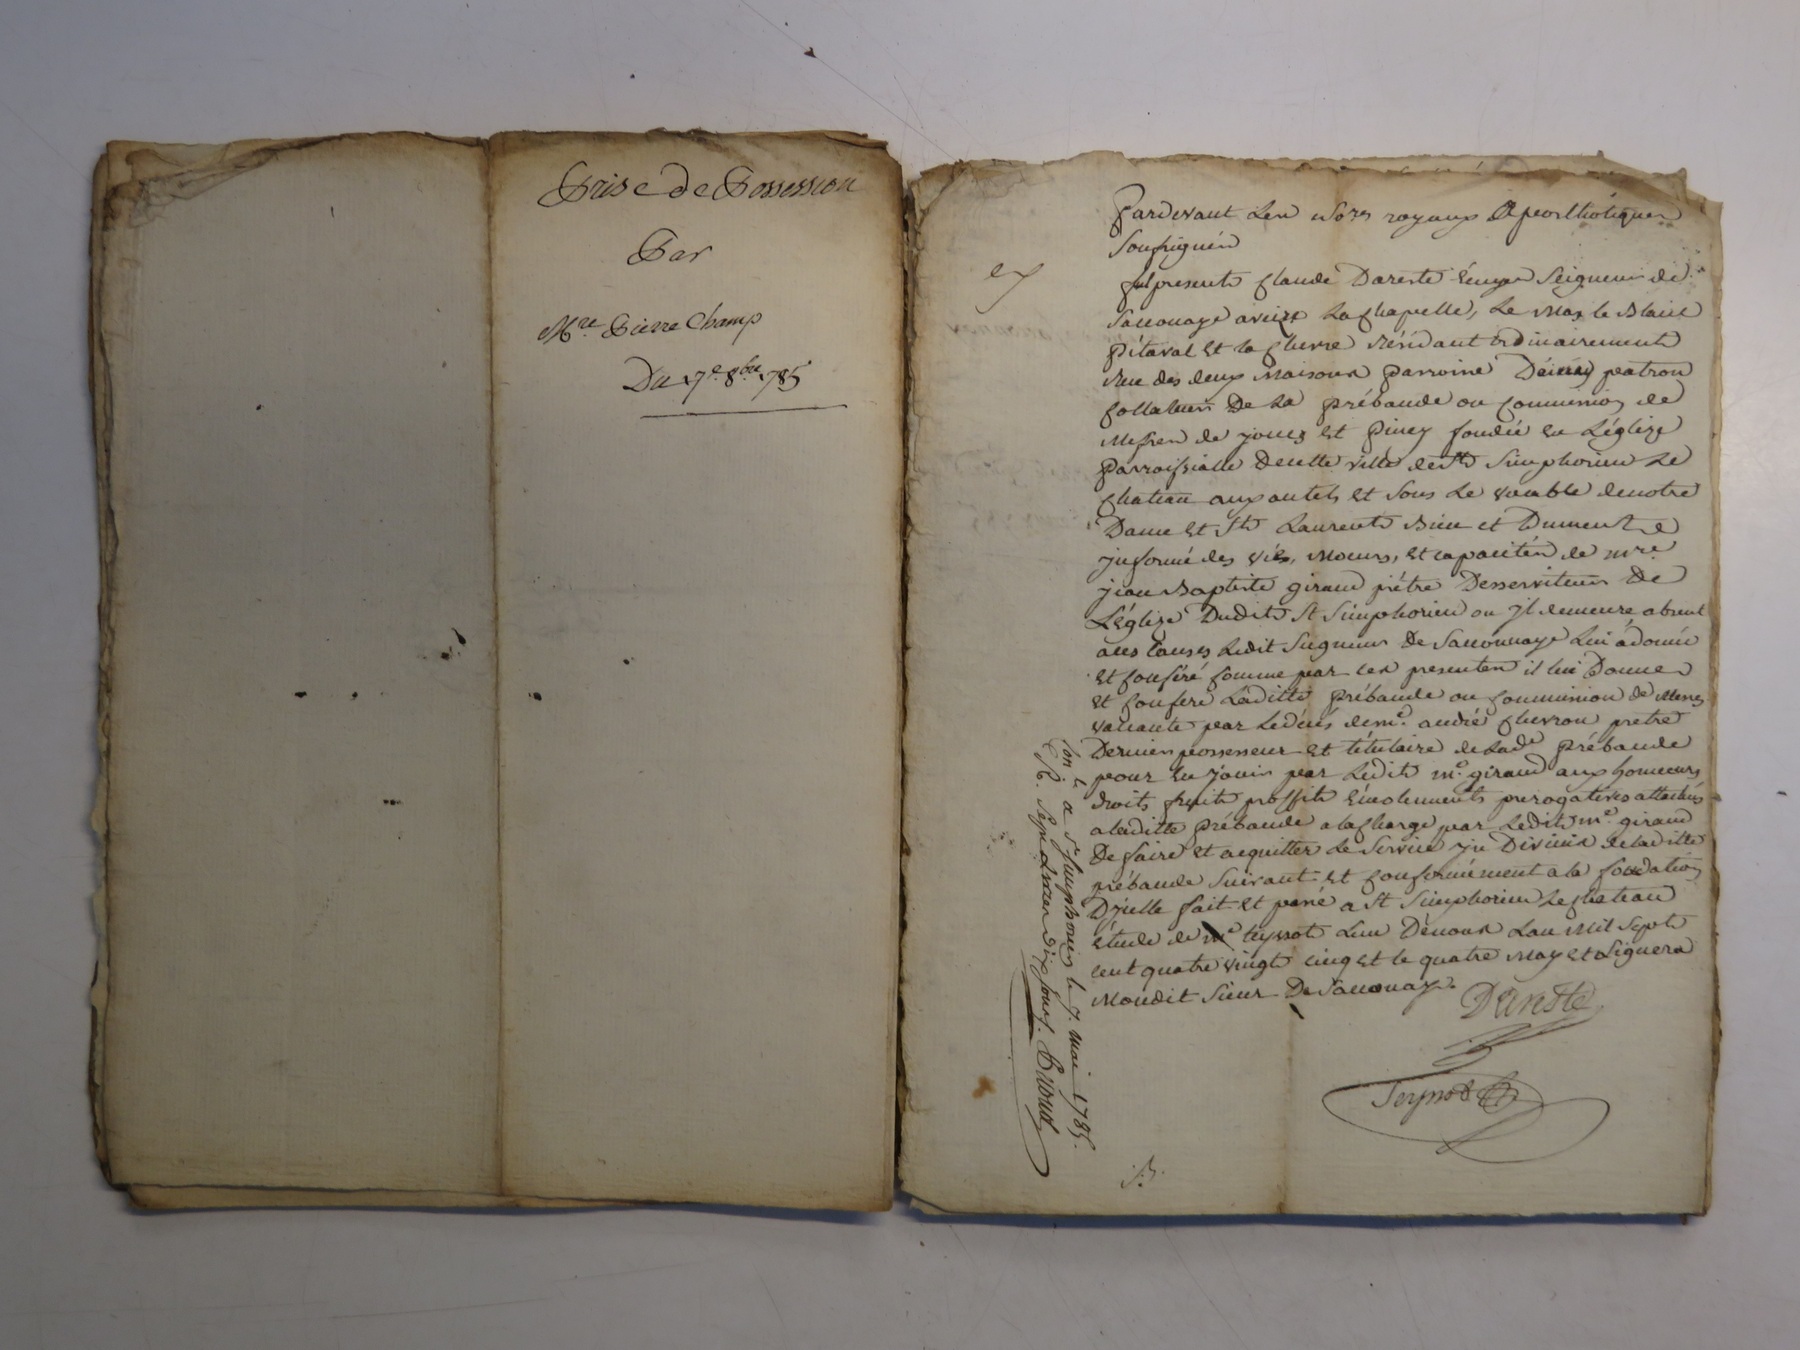 Prise de Possession
Par
Mre. Pierre Champ
Du 7e. 8bre 1785
Pardevant Les No.res royaux Apostholiques
Soussignés
fut present Claude Dareste Ecuyer Seigneur de
Saconaye aveize La Chapelle, Le Mas le Blanc
Pitaval Et la Résidant ordinairement
Rue des deux Maisons parroisse patron
Collateur De La prébande ou Commission de
Messieurs de jouez Et Piney fondée En L'églize
Parroissialle De cette ville de St. Simphorien Le
Chateau aux autels Et Sous Le vocable de notre
Dame Et St. Laurent Bien et Dument
informé des vies, Moeurs, Et capacités de mre.
jean Baptiste giraud prêtre Desserviteur De
L'églize Dudit St Simphorien ou jl demeure absent
Ledit Seigneur De Saconnaye Lui a donné
Et Conféré Comme par ces presentes il lui Donne
Et Confere Laditte prébande ou Commission de
vaccante par Le décés de me. andré Chevron pretre
Dernier possesseur Et titulaire de Lade. prébande
pour En jouir par Ledit me. giraud aux honneurs
droits fruits proffits Emoluments prerogatives attachés
a laditte prébande a la Charge par Ledit me. giraud
De faire Et acquitter Le Service Divin de laditte
prébande Suivant Et Conformément a la fondation
D'jcelle fait Et passé a St Simphorien Le Chateau
Etude de me teyssot L'un De nous L'an Mil Sept
cent quatre vingt cinq Et le quatre May Et Signera
Mondit Sieur De Saconay.
Dareste
Teyssot
Con.lé a St. Simphorien le 7. Mai 1785.
R. Sept Livres dix sous.